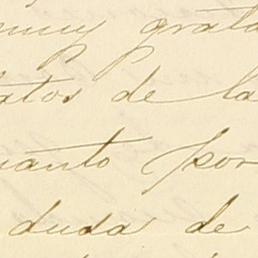 muy grata
atos de la
uanto por
duda de